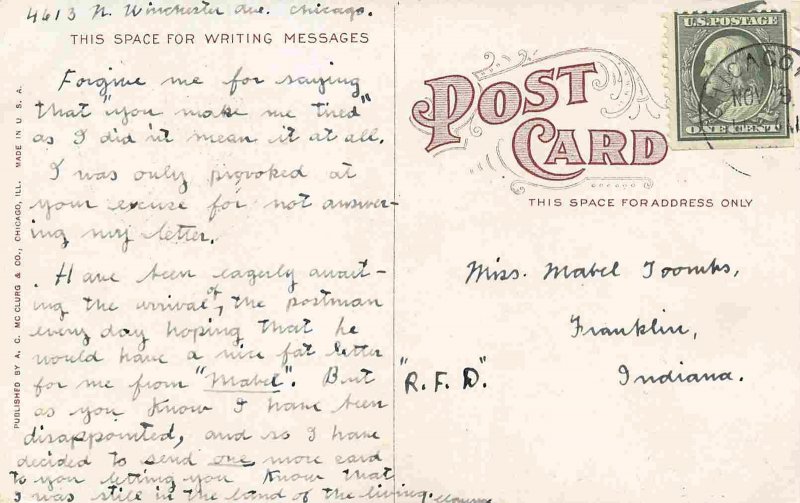 4613 N. Winchester Ave. Chicago.
THIS SPACE FOR WRITING MESSAGES
Forgive me for saying
that "you make me tired"
as I did n't mean it at all.
I was only provoked at
your excuse for not answer-
ing my letter.
Have been eagerly await-
ing the arrival of, the postman
every day hoping that he
would have a nice fat letter
for me from "Mabel". But
as you know I have been
disappointed, and so I have
decided to send one more card
to you letting you know that
I was still in the land of the living.
PUBLISHED BY A. C. MC CLURG & CO., CHICAGO, ILL. MADE IN U. S. A.
POST
CARD
THIS SPACE FOR ADDRESS ONLY
U.S. POSTAGE
ONE CENT
CHICAGO
NOV
Miss. Mabel Toombs,
Franklin,
"R. F. D".
Indiana.